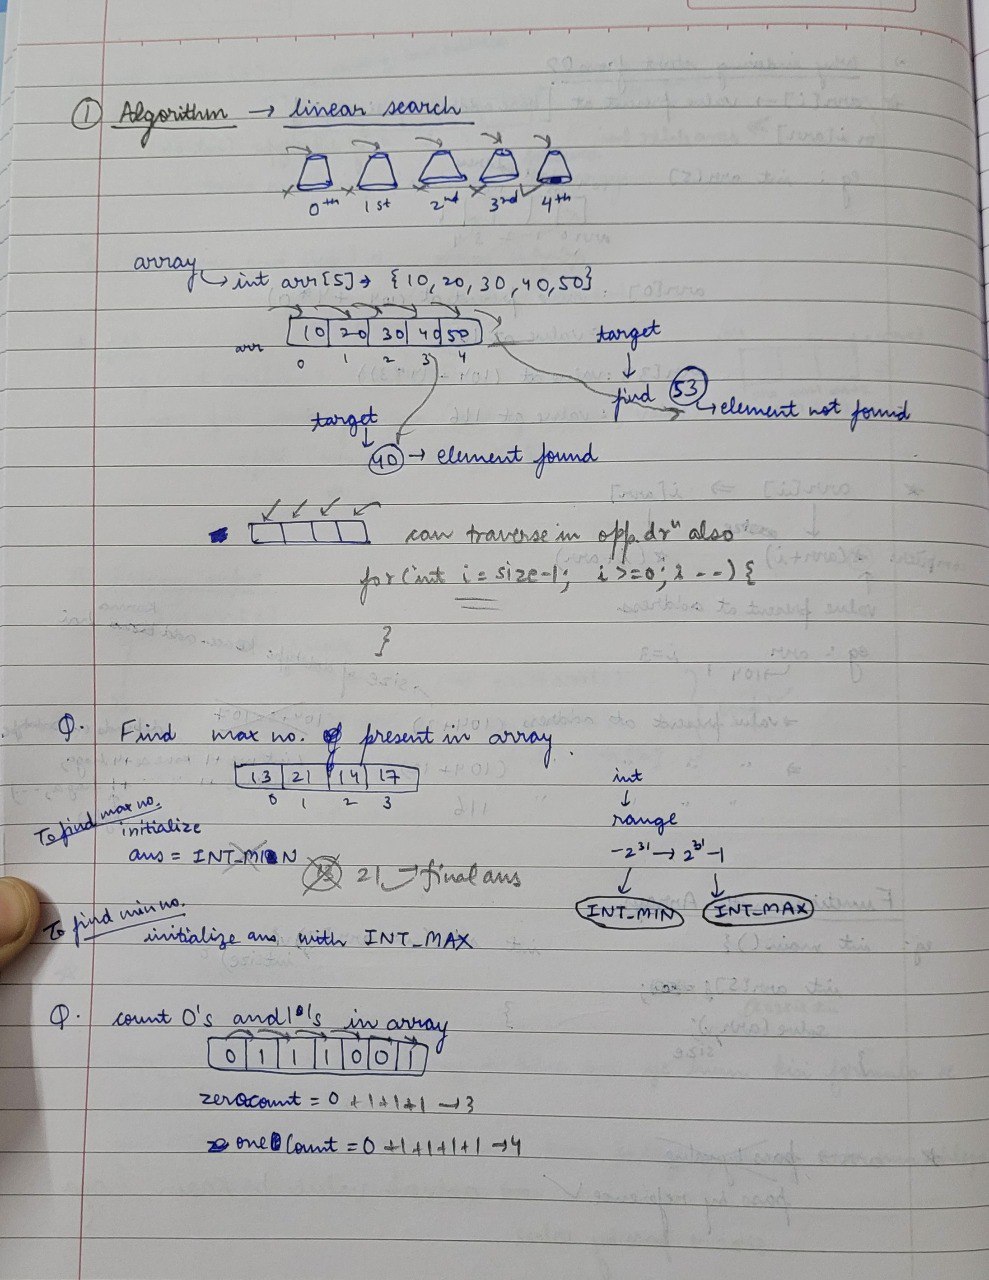 ① Algorithm → linear search
0th 1st 2nd 3rd 4th
array
int arr[5] → {10, 20, 30, 40, 50}
arr 10 20 30 40 50
0 1 2 3 4
target
find 53 → element not found
target
40 → element found
can traverse in opp. drn also
for (int i = size-1; i >= 0; i --) {
}
Q. Find max no. of present in array.
13 21 14 17
0 1 2 3
int
range
-2^31 → 2^31 -1
INT_MIN INT_MAX
To find max no.
initialize
ans = INT_MIN 13 21 → final ans
To find min no.
initialize ans with INT_MAX
Q. count 0's and 1's in array
0 1 1 1 0 0 1
zerocount = 0 +1+1+1 → 3
one Count = 0 +1+1+1+1 → 4